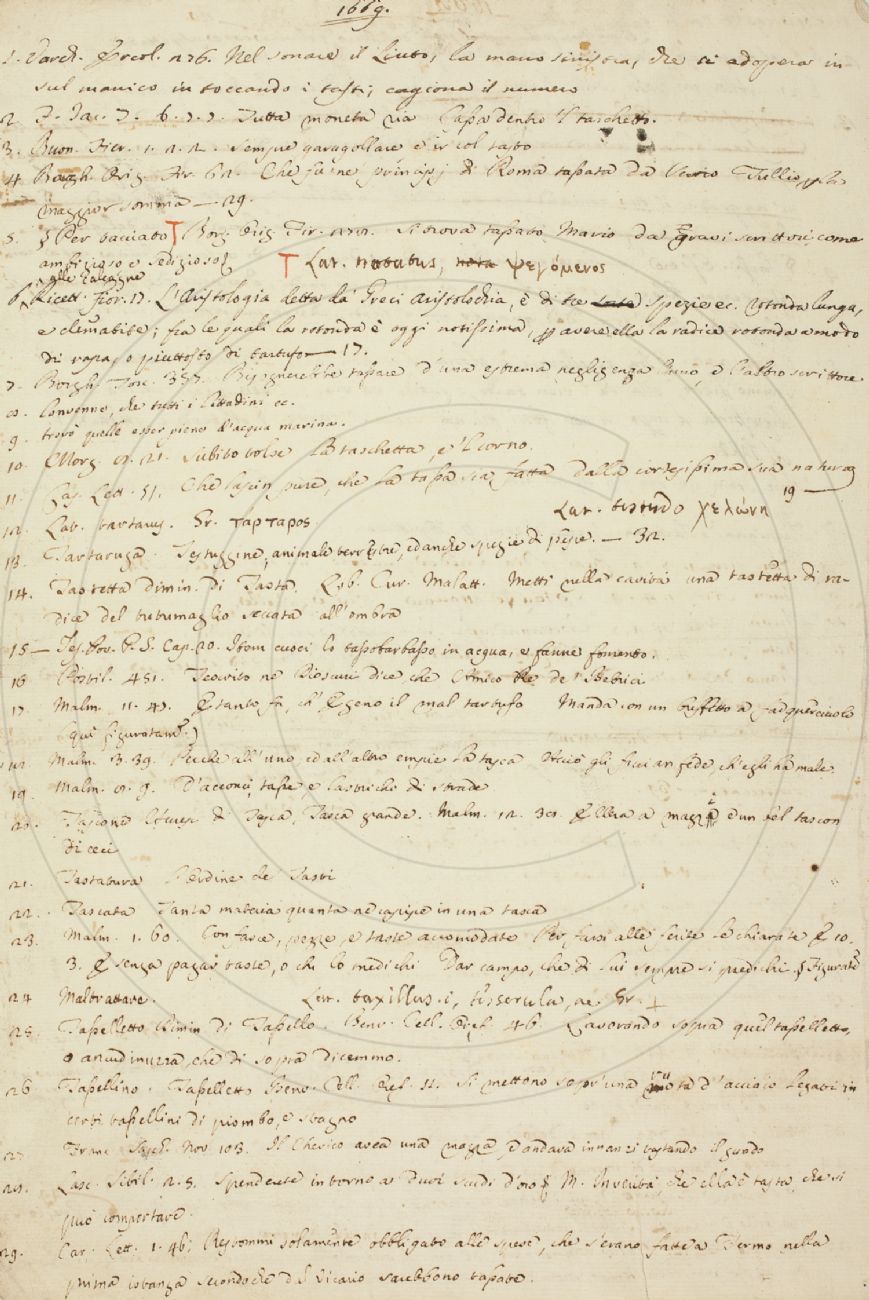 1669.
1. Varch. Ercol. 276. Nel sonare il Liuto, la mano sinistra, che si adopera in
sul manico in toccando i tasti; cagiona il numero
2 F. Jac. T. 6. Tutta moneta via Passa dentro 'l taschetto.
3. Buon. Fier. 1. 2. 2. Sempre garagollare e ir col tasto
4 Borgh. Orig. Fir. 62. Che fu ne principj di Roma tassata da Servio Tullio per la
maggior somma — 29.
5. § Per tacciato T Borg. Orig. Fir. Si trova tassato Mario da gravi scrittori, come
ambizioso e sedizioso T Lat. notatus, nota ψεγόμενος
alle Calcagne
6. Ricett. Fior. 17. L'Aristologia detta da' Greci Aristolochia, è di tre sorte spezie ec. rotonda lunga,
e clematite; fra le quali la rotonda è oggi notissima, per avere ella la radice rotonda a modo
di rapa, o piuttosto di tartufo — 17.
7. Borgh. Tosc. Bisognerebbe tassare d'una estrema negligenza l'uno, e l'altro scrittore
8. Convenne, che tutti i Cittadini ec.
9. trovò quelle esser piene d'acqua marina.
10. Morg. 21. Subito tolse la taschetta, e 'l corno.
11. Cas. Lett. 51. Che lasci pure, che la tassa sia fatta dalla cortesissima sua natura
19 —
12. Lat. tartarus. Gr. ταρταρος. Lat. testudo χελώνη
13. Tartaruga. Testuggine, animale terrestre, ed anche spezie di pesce. — 32.
14. Tastetta dimin. di Tasta. Lib. Cur. Malatt. Metti nella cavità una tastetta di ra-
dice del titimaglio seccata all'ombra
15 — Tes. Pov. P. S. Cap. 20. Item cuoci lo tassobarbasso in acqua, e fanne fomento.
16 Postil. 451. Teocrito ne Dioscuri dice che Amico Re de' Bebrici
17. Malm. 11. 47. E tanto fa, ch' E geno il mal tartufo Manda con un buffetto a far querciuolo
(qui figuratam.)
18. Malm. 3. 39. Perche all'uno, ed all'altro empie la tasca Acciò gli faccian fede ch'egli ha male
19. Malm. 9. D'acconci, tasse, e lastrichi di strade
20. Tascone Accresc. di Tasca, Tasca grande. Malm. 12. E llera a mazzi e un bel tascon
di ceci
21. Tastatura L'ordine de Tasti
22. Tascata Tanta materia quanta ne capisce in una tasca
23. Malm. 1. 60. Con fasce, pezze, e taste accomodate Per farsi alle ferite le chiarate E 10.
3. E senza pagar taste, o chi lo medichi Dar campo, che di lui sempre si predichi. § Figurate
24 Maltrattare. Lat. taxillus, i, tesserula, ae Gr. +
25. Tasselletto Dimin di Tassello. Benv. Cell. Oref. 46 Lavorando sopra quel tasselletto,
o ancudinuzza, che di sopra dicemmo.
26 Tassellino. Tasselletto Benv. Cell. Oref. Si mettono sopr'una ruota d'acciaio legati in
certi tassellini di piombo, e stagno
27 Franc. Sacch. Nov. 103. Il Cherico avea una mazza, e andava innanzi tastando il guado
28. Lasc. Sibil. 2. 5. Spenderete intorno a dieci scudi d'oro M. In verità, che ella è tassa, che si
può comportare.
29. Car. Lett. 1. 46; Restommi solamente obbligato alle spese, che s'erano fatte a Fermo nella
prima istanza secondoche dal Vicario sarebbono tassate.